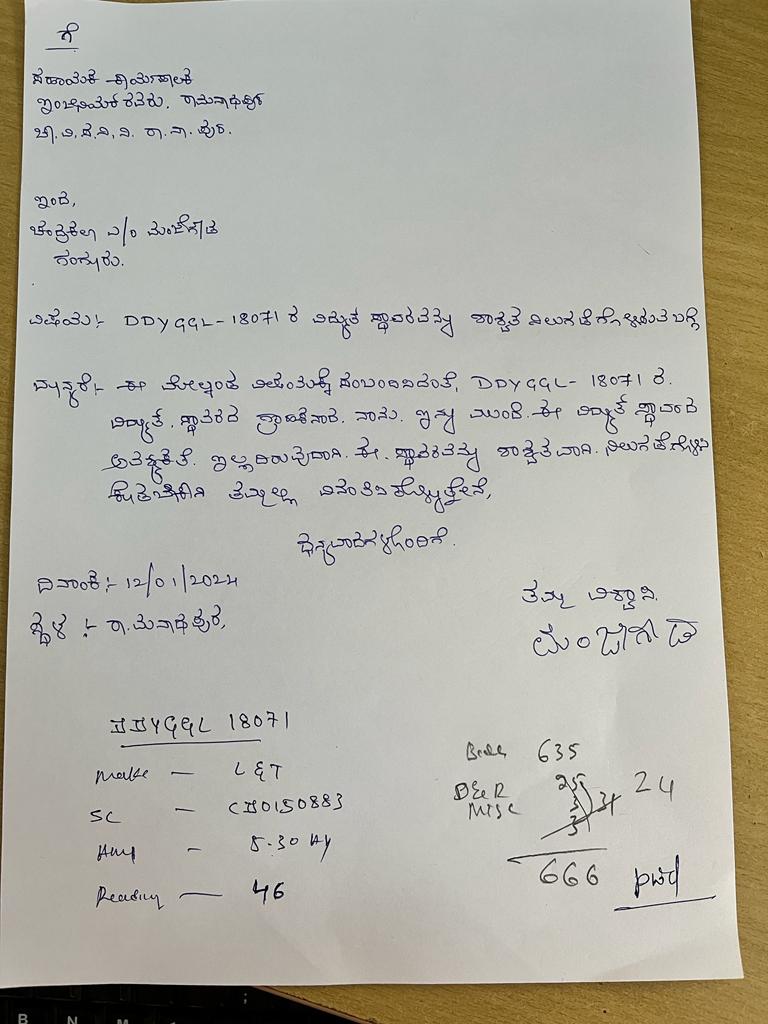 ಗೆ
ಸಹಾಯಕ ಕಾರ್ಯಪಾಲಕ
ಇಂಜಿನಿಯರ್ ರವರು. ರಾಮನಾಥಪುರ
ಚಾ.ವಿ.ಸ.ನಿ.ನಿ. ರಾ.ನಾ.ಪುರ.
ಇಂದ,
ಚಂದ್ರಕಲಾ w/o ಮಂಜೇಗೌಡ
ಗಂಗೂರು.
ವಿಷಯ:- DDYGGL-18071 ರ ವಿದ್ಯುತ್ ಸ್ಥಾವರವನ್ನು ಶಾಶ್ವತ ನಿಲುಗಡೆಗೊಳಿಸುವ ಬಗ್ಗೆ
ಮಾನ್ಯರೆ:- ಈ ಮೇಲ್ಕಂಡ ವಿಷಯಕ್ಕೆ ಸಂಬಂದಿಸಿದಂತೆ, DDYGGL-18071 ರ.
ವಿದ್ಯುತ್. ಸ್ಥಾವರದ ಗ್ರಾಹಕನಾದ. ನಾನು. ಇನ್ನು ಮುಂದೆ. ಈ ವಿದ್ಯುತ್ ಸ್ಥಾವರದ
ಅವಶ್ಯಕತೆ. ಇಲ್ಲದಿರುವುದಾಗಿ. ಈ. ಸ್ಥಾವರವನ್ನು ಶಾಶ್ವತವಾಗಿ. ನಿಲುಗಡೆಗೊಳಿಸಿ
ಕೊಡಬೇಕಾಗಿ ತಮ್ಮಲ್ಲಿ ವಿನಂತಿಸಿಕೊಳ್ಳುತ್ತೇನೆ,
ಧನ್ಯವಾದಗಳೊಂದಿಗೆ.
ದಿನಾಂಕ:- 12/01/2024
ಸ್ಥಳ :- ರಾಮನಾಥಪುರ,
ತಮ್ಮ ವಿಶ್ವಾಸಿ.
ಮಂಜೇಗೌಡ
DDYGGL 18071
Make — L&T
SC — CD0150883
Amp - 5-30 A
Reading — 46
635
D&R 25
Misc 3
3
31
24
666
paid